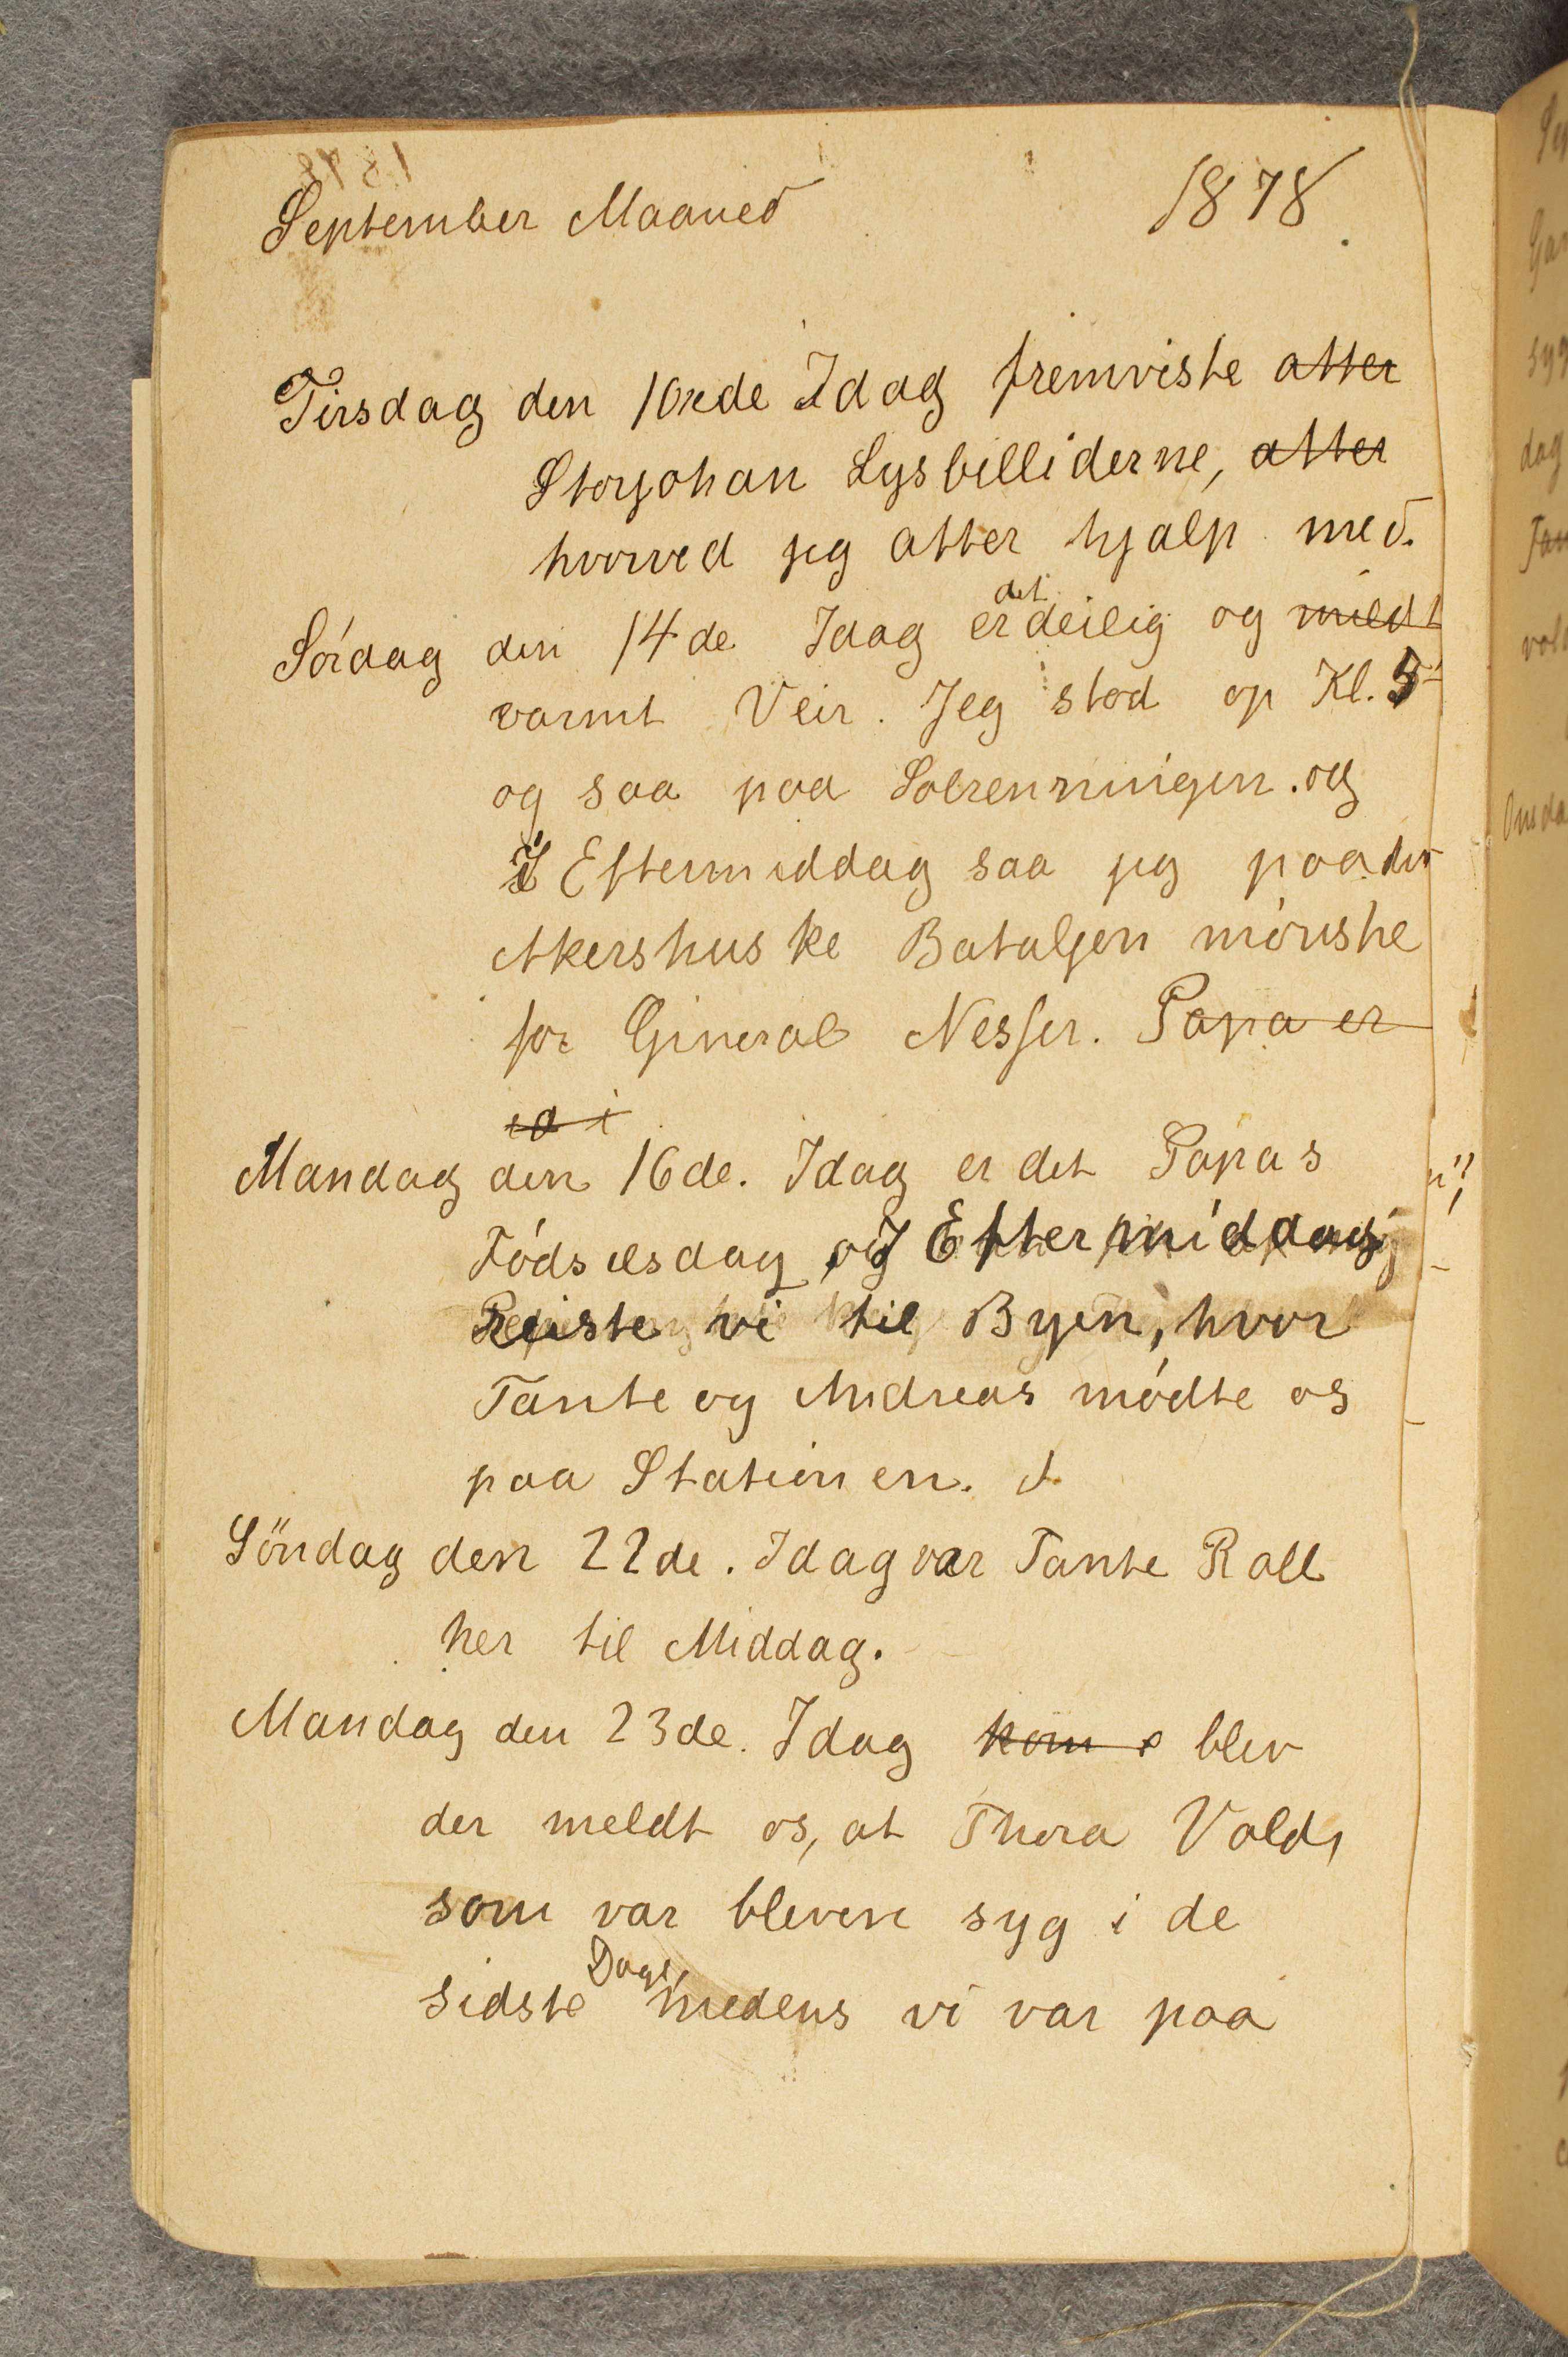 September Maaned 1878
Tirsdag den 10nde Idag fremviste atter
Storjohan Lysbilliderne, atter
hvorved jeg atter hjalp med.
Lördag den 14de Idag er det deilig og mildt
varmt Veir. Jeg stod op Kl. 5
og saa paa Solrenningen. og
I Eftermiddag saa jeg paa den
Akershuske Bataljen mönstre
for General Nesser. Papa er
i
Mandag den 16de. Idag er det Papas
Födselsdag og I Eftermiddag
Reiste vi til Byen, hvor
Tante og Andreas mödte os
paa Stationen. I
Söndag den 22de. Idag var Tante Roll
her til Middag.
Mandag den 23de. Idag kom blev
der meldt os, at Thora Vold,
som var bleven syg i de
sidste Dage, medens vi var paa